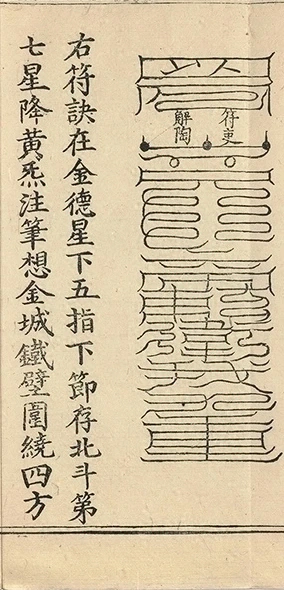 符吏
解陶
右符訣在金德星下五指下節存北斗第
七星降黃炁注筆想金城鐵壁圍繞四方